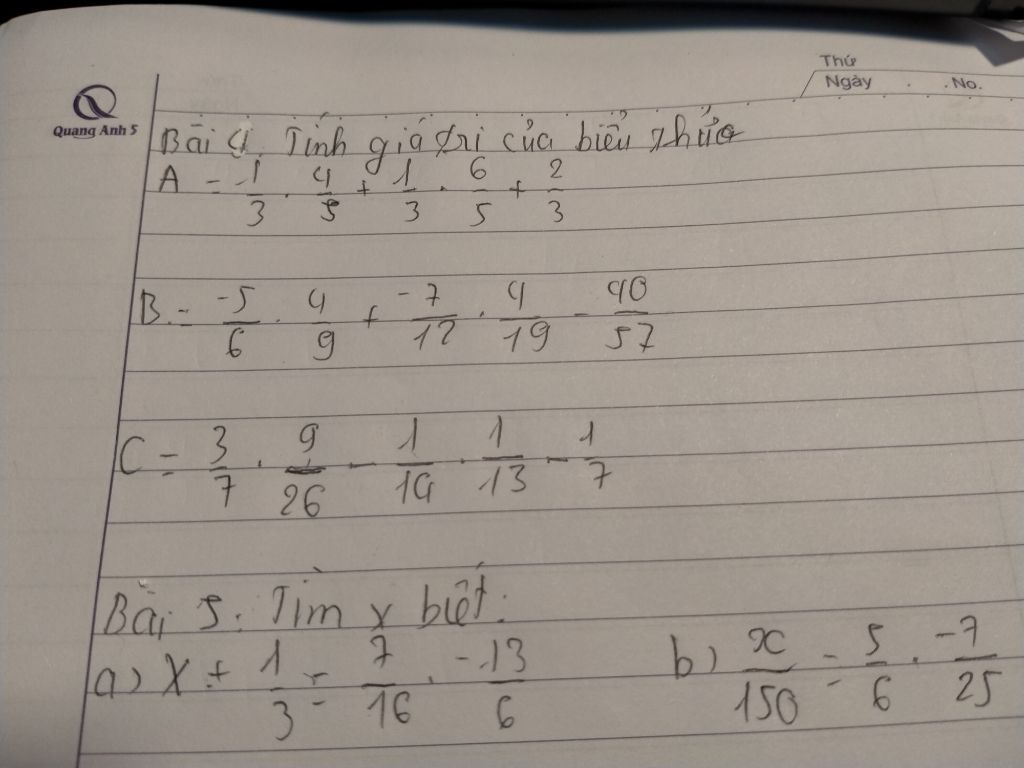 Thứ
Ngày . . No.
Quang Anh 5
Bài 4. Tính giá trị của biểu thức
A = -1/3 . 4/5 + 1/3 . 6/5 + 2/3
B = -5/6 . 4/9 + -7/12 . 4/19 - 40/57
C = 3/7 . 9/26 - 1/14 . 1/13 - 1/7
Bài 5: Tìm x biết:
a) X + 1/3 = 7/16 . -13/6 b) x/150 = 5/6 . -7/25